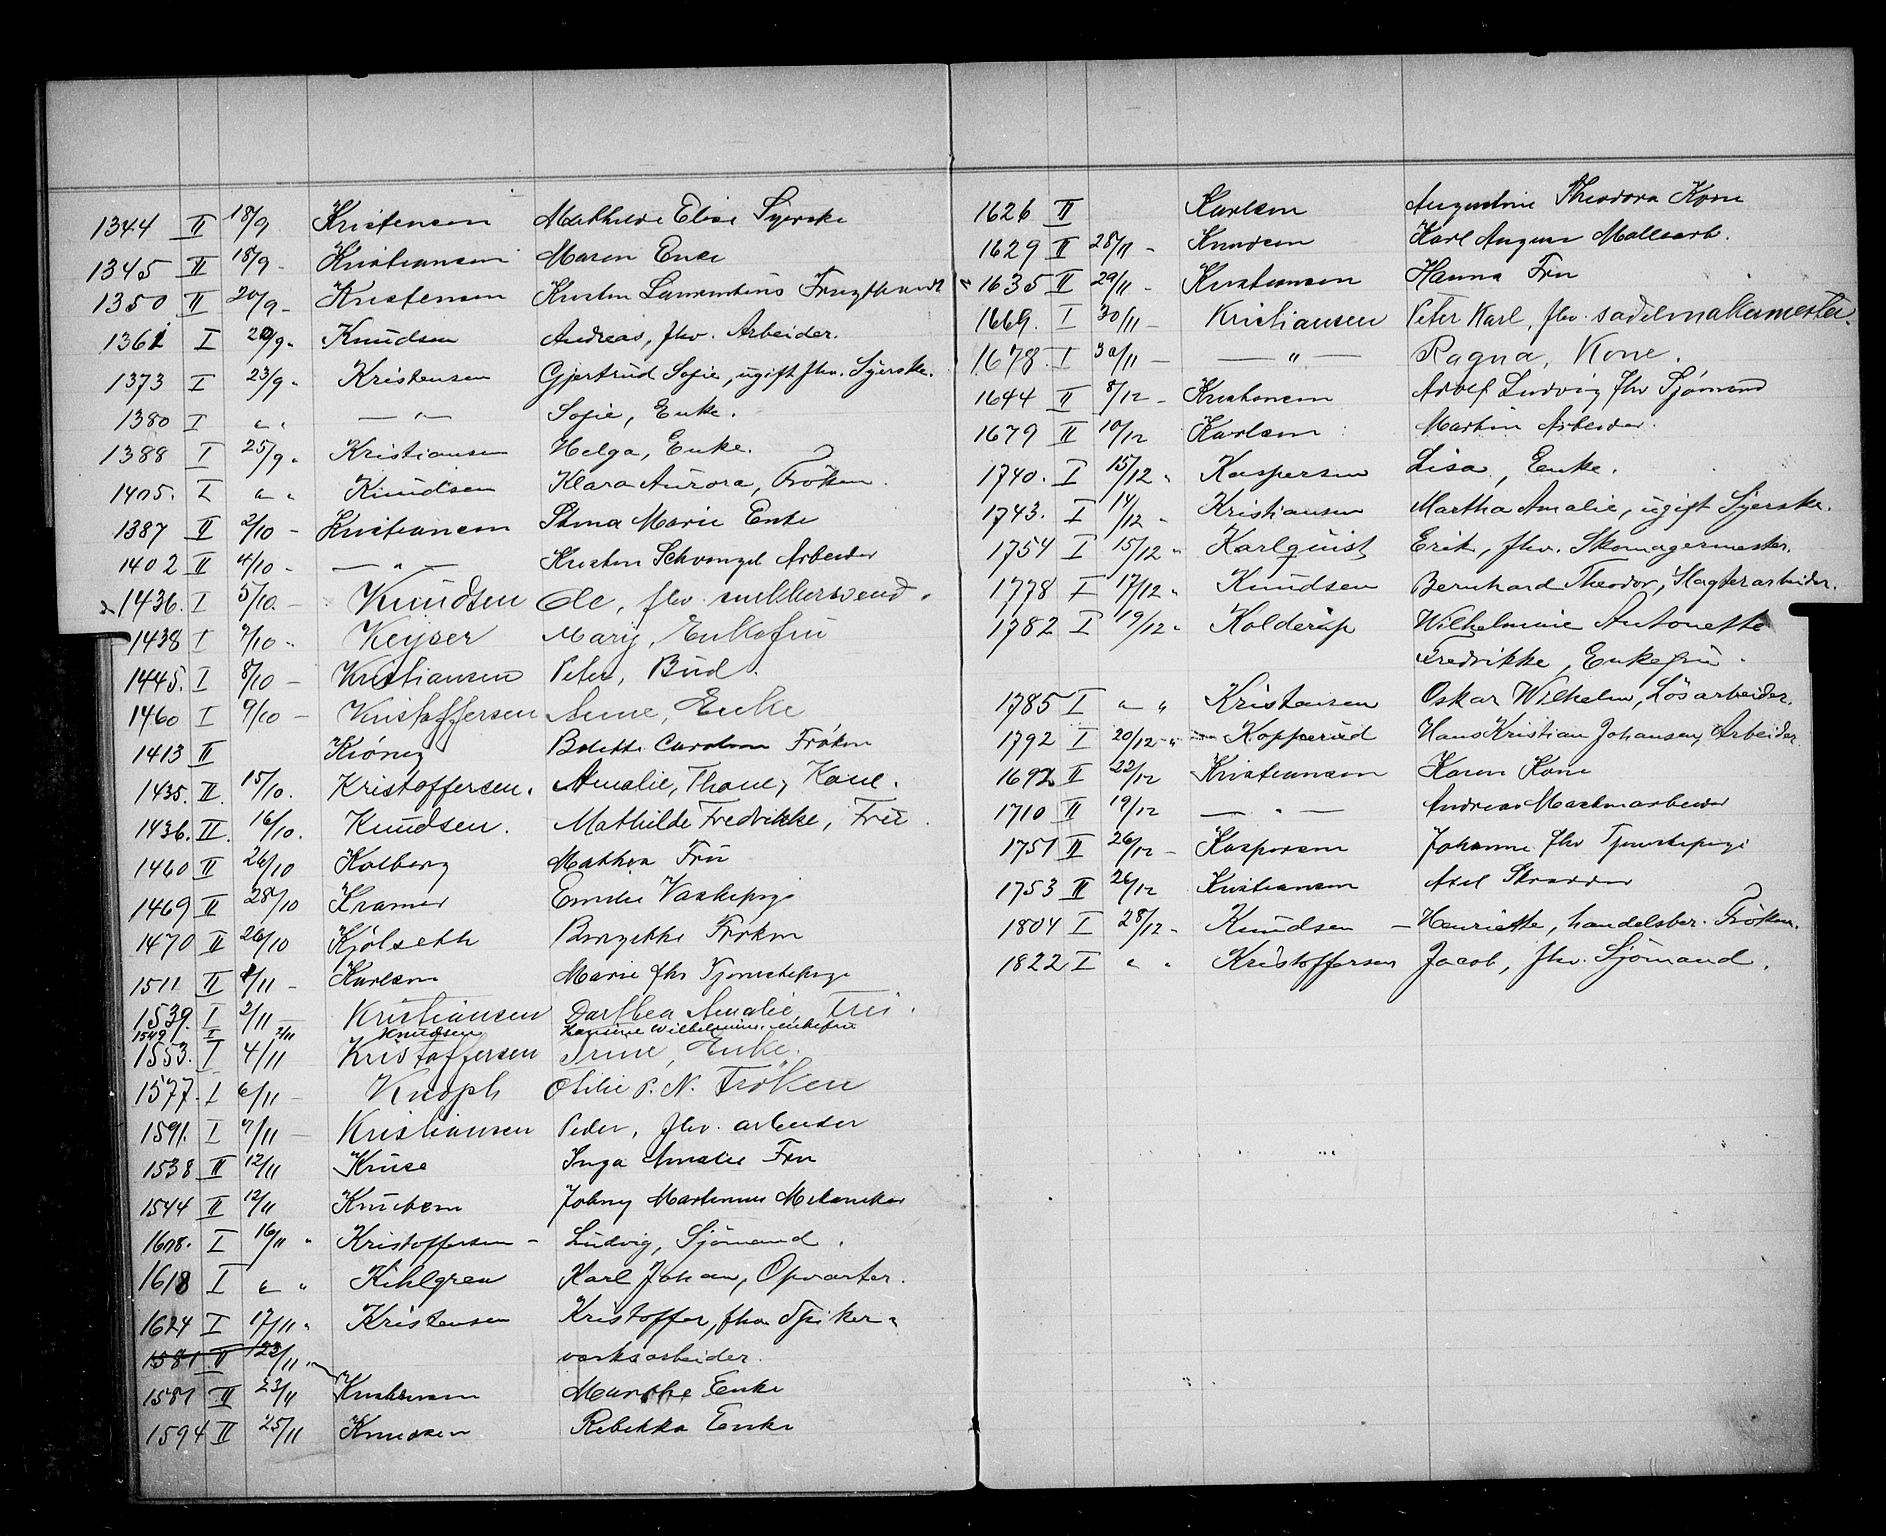 1344 II 18/9 Kristensen Mathilde Elise Syerske
1345 II 18/9 - Kristiansen Maren Enke
1350 II 20/9 - Kristensen Kristen Laurentius Frugthandl
1361 I 20/9 " Knudsen Andreas, fhv. Arbeider.
1373 I 23/9 " Kristensen Gjertrud Sofie, ugift fhv. Syerske.
1380 I " " — " — Sofie, Enke.
1388 I 25/9 " Kristiansen Helga, Enke.
1405. I " " Knudsen Klara Aurora, Frøken.
1387 II 2/10 - Kristiansen Stina Marie Enke
1402 II 4/10 - — " — Kristen Arbeider
1436. I 5/10 - Knudsen Ole, fhv. snekkersvend.
1438 I 7/10 " Keyser Mary, Enkefru
1445. I 8/10 - Kristiansen Peter, Bud.
1460 I 9/10 - Kristoffersen Anne, Enke
1413 II Krönig Bolette Caroline Frøken
1435. II. 15/10. Kristoffersen. Amalie, Thane, Kone.
1436. II. 16/10. Knudsen. Mathilde Fredrikke, Frue.
1460 II 26/10 Kolberg Mathea Fru
1469 II 28/10 Kramer Emilie Vaskepige
1470 II 26/10 Kjølseth Birgitte Frøken
1511 II 8/11 - Karlsen Marie fhv Tjenestepige
1539. I 2/11 - Kristiansen Dorthea Amalie, Fru.
1549 I 2/11 Knudsen Hansine Wilhelmine, enkefru
1553. I 4/11 Kristoffersen Trine, Enke.
1577. I 6/11 - Knoph Otilie P. N. Frøken
1591. I 7/11 - Kristiansen Peder, fhv. arbeider
1538 II 12/11 Kruse Inga Amalie Fru
1544 II 12/11 Knudsen Johny Martinius Mekaniker
1608. I 16/11 " Kristoffersen - Ludvig, Sjømand.
1618 I " " Kihlgren Karl Johan, Opvarter.
1624 I 17/11 " Kristensen Kristoffer, fhv Spiker-
1581 II 23/11 " verksarbeider.
1581 II 23/11 Kristiansen Marthe Enke
1594 II 25/11 Knudsen Rebekka Enke
1626 II Karlsen Augustine Theodora Kone
1629 II 28/11 - Knudsen Karl August Møllearb.
1635 II 29/11 - Kristiansen Hanna Fru
1669. I 30/11 - Kristiansen Peter Karl, fhv. sadelmakermester.
1678. I 30/11 - — " — Ragna, Kone.
1644 II 8/12 - Kristiansen Adolf Ludvig fhv Sjømand
1679 II 10/12 Karlsen Martin Arbeider.
1740. I 15/12 " Kaspersen Lisa, Enke.
1743. I 14/12 " Kristiansen Martha Amalie, ugift Syerske.
1754 I 15/12 " Karlquist Erik, fhv. Skomagermester.
1778 I 17/12 " Knudsen Bernhard Theodor, Slagterarbeider.
1782 I 19/12 " Kolderup Wilhelmine Antonette
Fredrikke, Enkefru.
1785 I " " Kristensen Oskar Wilhelm, Løsarbeider.
1792 I 20/12 " Kopperud Hans Kristian Johansen, Arbeider
1692 II 22/12 Kristiansen Karen Kone
1710 II 19/12 — " — Andreas Maskinarbeider
1751 II 26/12 - Kaspersen Johanne fhv Tjenestepige
1753 II 26/12 Kristiansen Axel Skrædder
1804 I 28/12 " Knudsen - Henriette, handelsber. Frøken.
1822 I " " Kristoffersen Jacob, fhv. Sjømand.